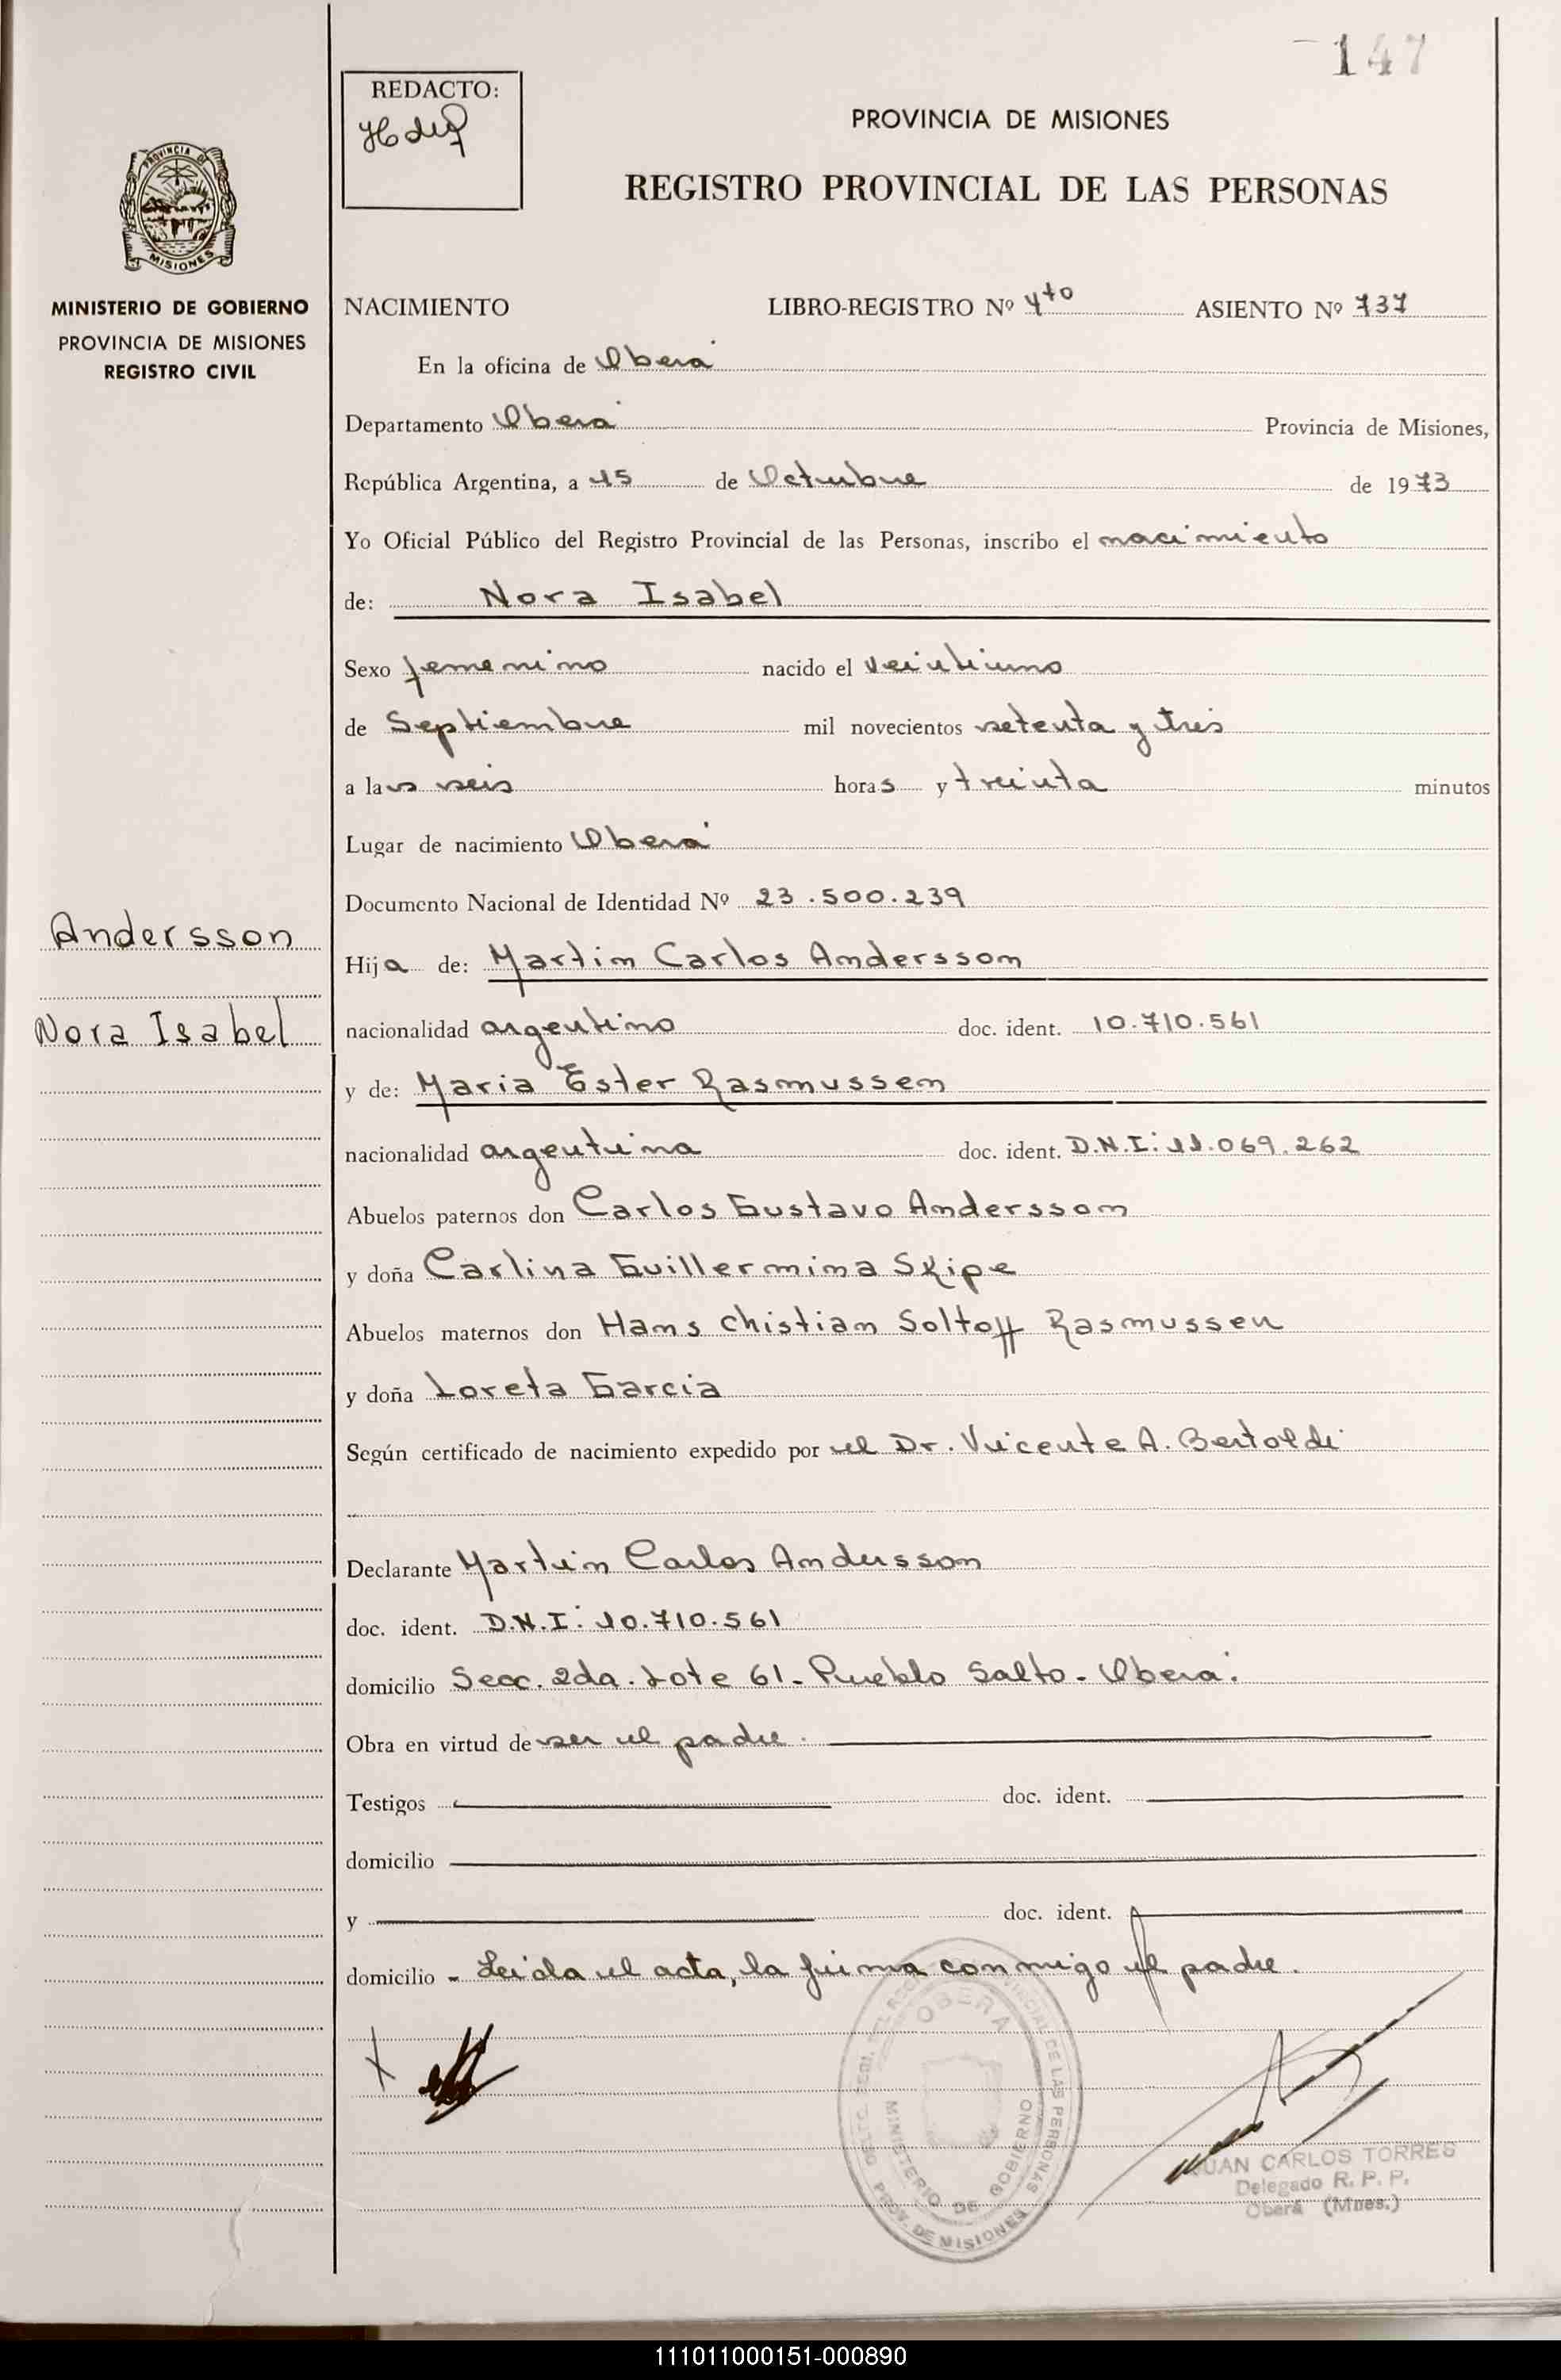 147
REDACTO:
PROVINCIA DE MISIONES
REGISTRO PROVINCIAL DE LAS PERSONAS
PROVINCIA DE
MISIONES
MINISTERIO DE GOBIERNO
PROVINCIA DE MISIONES
REGISTRO CIVIL
NACIMIENTO LIBRO-REGISTRO Nº 4to ASIENTO Nº 737
En la oficina de Oberá
Departamento Oberá Provincia de Misiones,
República Argentina, a 15 de Octubre de 1973
Yo Oficial Público del Registro Provincial de las Personas, inscribo el nacimiento
de: Nora Isabel
Sexo femenino nacido el veintiuno
de Septiembre mil novecientos setenta y tres
a las seis horas y treinta minutos
Lugar de nacimiento Oberá
Documento Nacional de Identidad Nº 23.500.239
Andersson
Hija de: Martin Carlos Andersson
Nora Isabel
nacionalidad argentino doc. ident. 10.710.561
y de: Maria Ester Rasmussen
nacionalidad argentina doc. ident. D.N.I: 11.069.262
Abuelos paternos don Carlos Gustavo Andersson
y doña Carlina Guillermina Skipe
Abuelos maternos don Hans Chistian Soltoff Rasmussen
y doña Loreta Garcia
Según certificado de nacimiento expedido por el Dr. Vicente A. Bertoldi
Declarante Martin Carlos Andersson
doc. ident. D.N.I: 10.710.561
domicilio Secc. 2da. Lote 61- Pueblo Salto - Oberá.
Obra en virtud de ser el padre.
Testigos doc. ident.
domicilio
y doc. ident.
domicilio - Leida el acta, la firma conmigo el padre.
OBERA
MINISTERIO DE GOBIERNO
PROV. DE MISIONES
JUAN CARLOS TORRES
Delegado R. P. P.
Oberá (Mnes.)
111011000151-000890